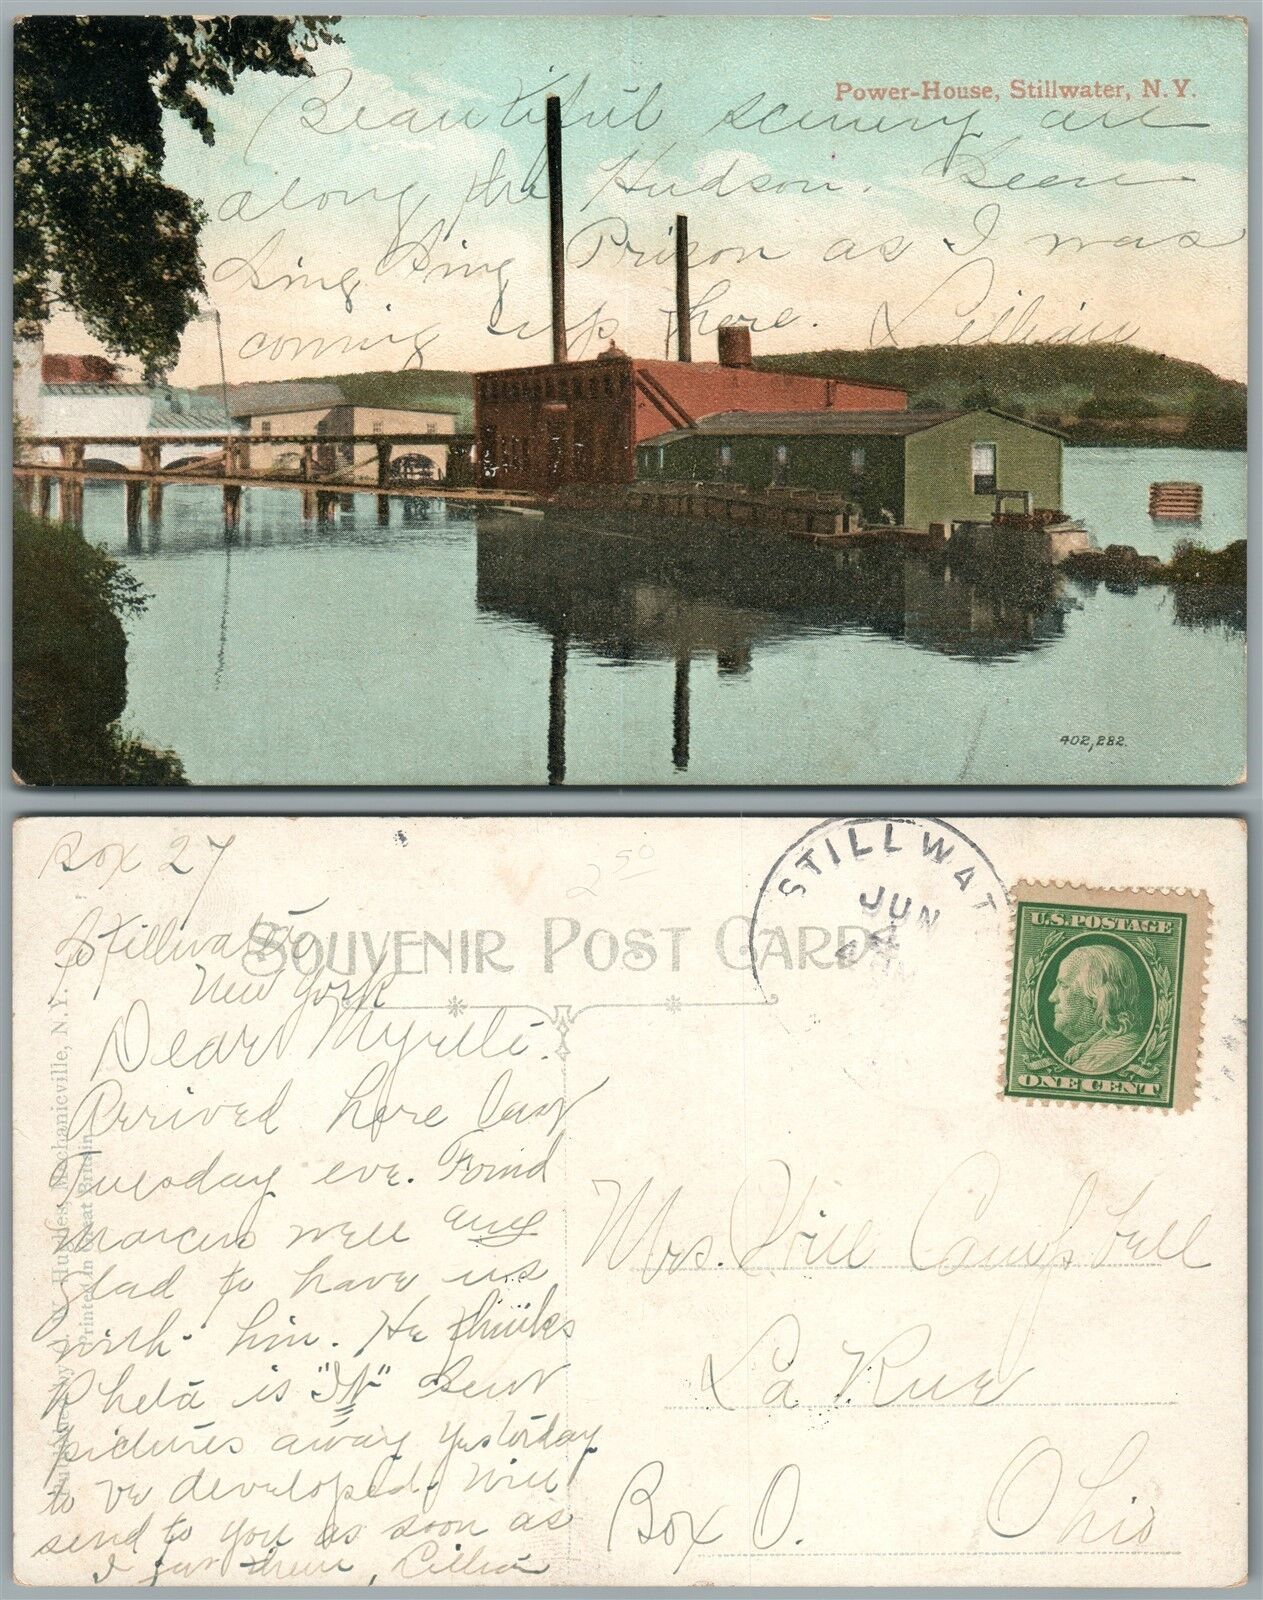 Power-House, Stillwater, N.Y.
Beautiful scenery are
along the Hudson. Seen
Sing Sing Prison as I was
coming up here. Lillian
402,282.
Box 27
Stillwater
New York
SOUVENIR POST CARD
250
STILLWAT
JUN
U.S. POSTAGE
ONE CENT
Dear Myrtle.
Arrived here last
Tuesday eve. Found
Marcus well and
glad to have us
with him. He thinks
Rheta is "It" Sent
pictures away yesterday
to be developed. Will
send to you as soon as
I get them, Lillian
Mrs. Will Campbell
La Rue
Box O. Ohio
Hughes, Mechanicville, N.Y.
Printed in Great Britain